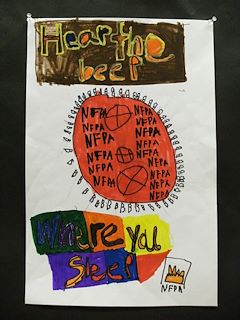 Hear the
beep
NFPA NFPA
NFPA NFPA
NFPA NFPA
NFPA NFPA
NFPA NFPA
NFPA NFPA
NFPA
NFPA
Where You
Sleep
NFPA